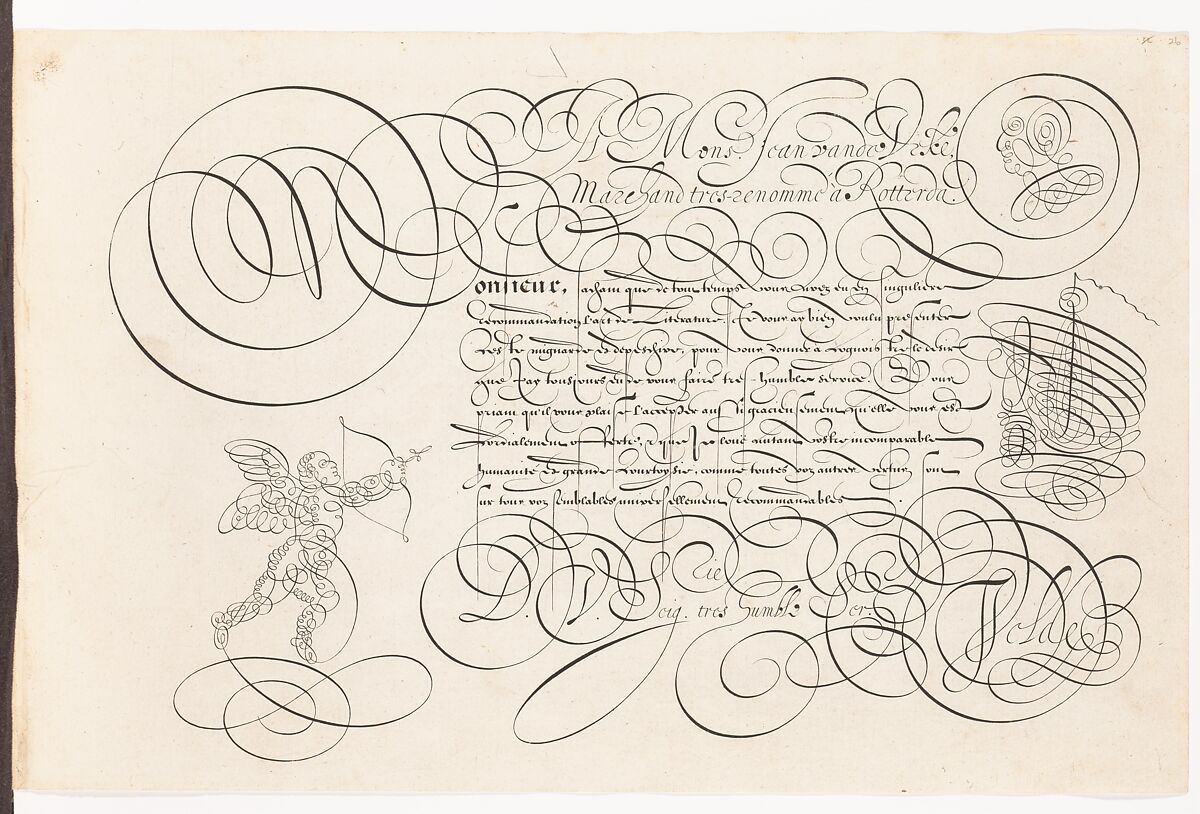 A Mons. Jean vande Vekē,
Marchand tres-renommé à Rotterdā.
Monsieur, sachant que de tout temps vous avez eu en singuliere
recommandation l'art de Literature, Je vous ay bien voulu presenter
ceste mignarde et depeschive, pour vous donner à cognoistre le desir
que J'ay tousjours eu de vous faire tres-humble service. Vous
priant qu'il vous plaise l'accepter aussi gracieusement qu'elle vous est
cordialement offerte, et que Je loue autant vostre incomparable
humanité et grande courtoysie, comme toutes voz autres vertuz sont
sur tous voz semblables universellement recommandables.
D. V. Seig.rie tres humble Ser.r
Velde